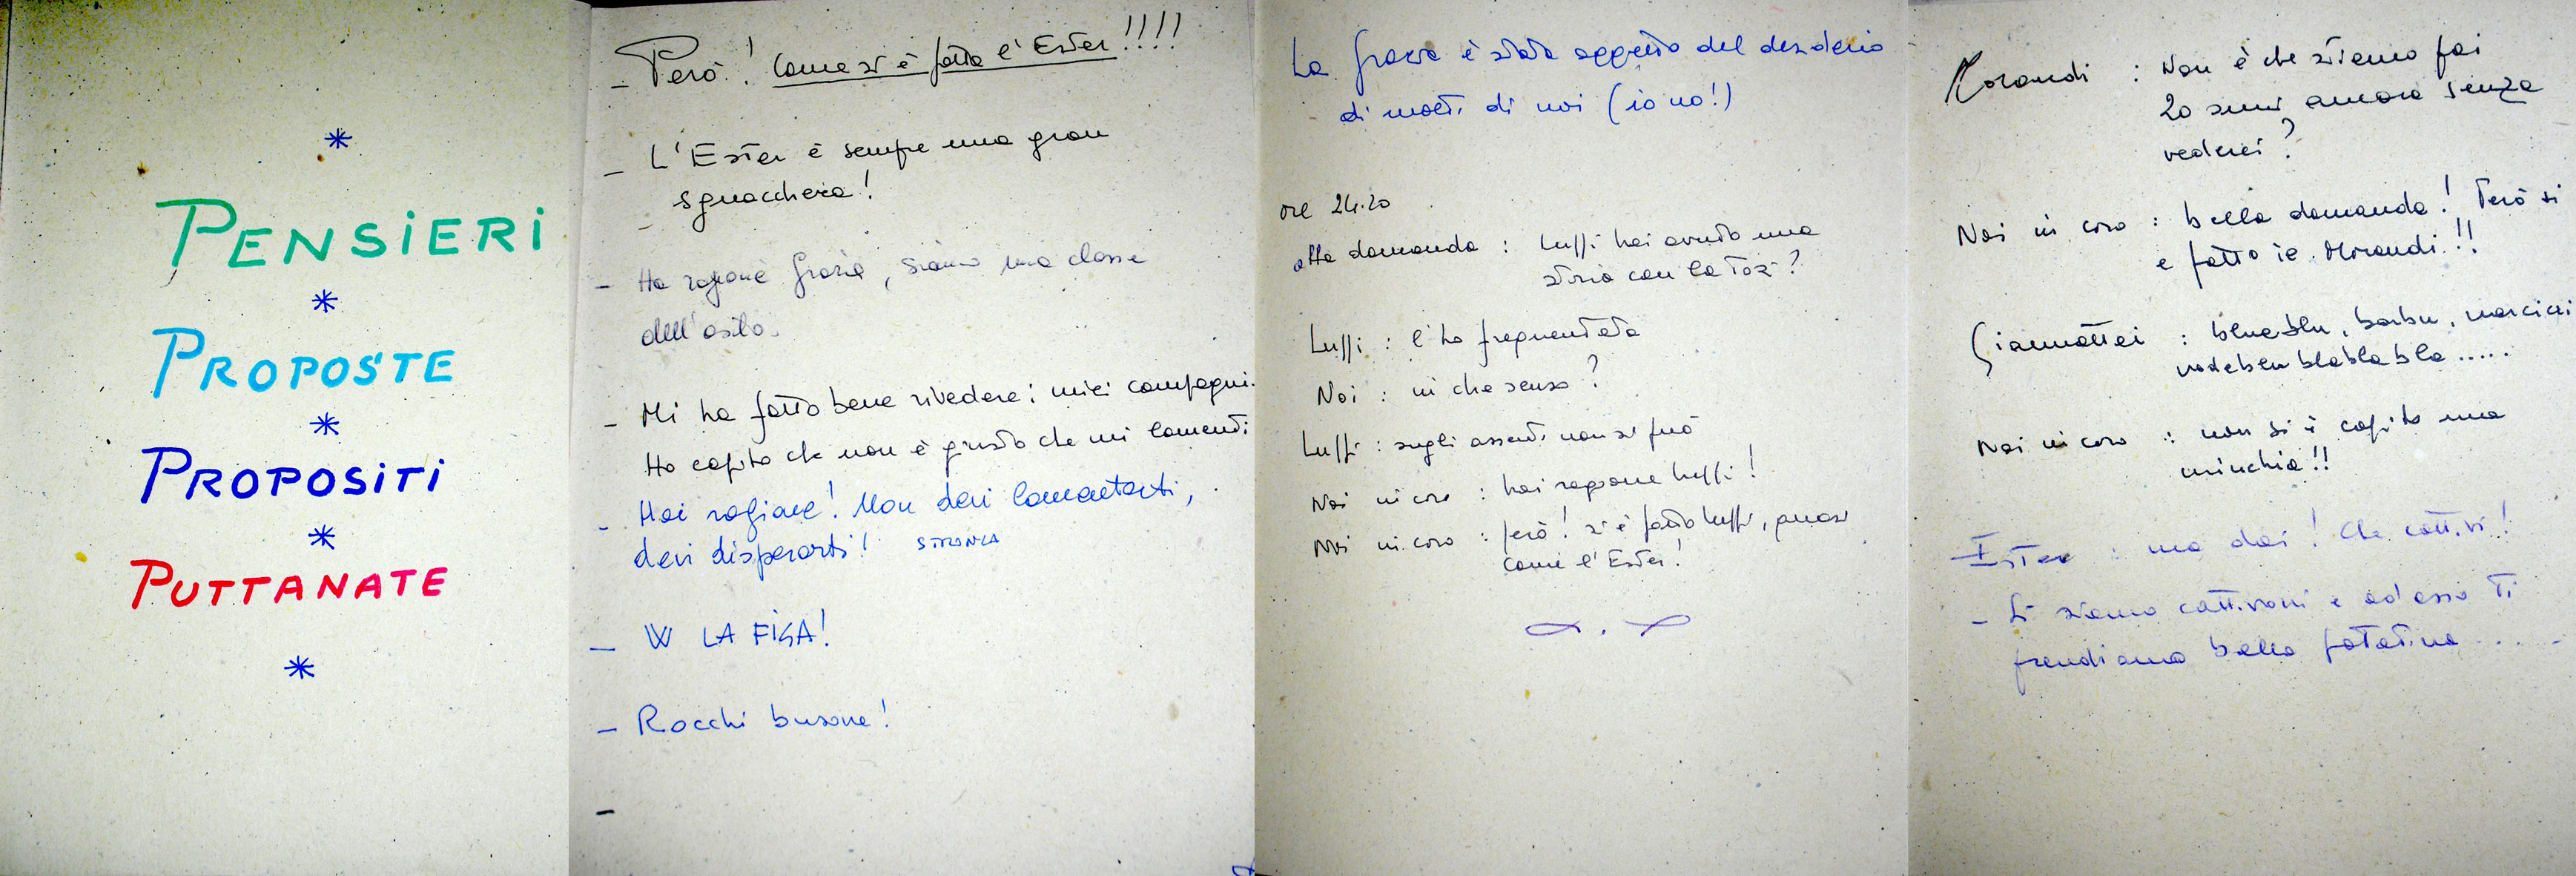 *
PENSIERI
*
PROPOSTE
*
PROPOSITI
*
PUTTANATE
*
- Però! Come si è fatta l'Ester!!!!
- L'Ester è sempre una gran
sguacchera!
- Ha ragione Grazia, siamo una classe
dell'asilo.
- Mi ha fatto bene rivedere i miei compagni.
Ho capito che non è giusto che mi lamenti
- Hai ragione! Non devi lamentarti,
devi disperarti! STRONZA
- W LA FIGA!
- Rocchi busone!
-
La Grazia è stata oggetto del desiderio
di molti di noi (io no!)
ore 24.20
alla domanda : Luffi hai avuto una
storia con la Tozi?
Luffi : l'ho frequentata
Noi : in che senso?
Luffi : sugli assenti non si può
Noi in coro : hai ragione Luffi!
Noi in coro : però! si è fatto Luffi, quasi
come l'Ester!
Morandi : Non è che stiamo poi
20 anni ancora senza
vederci?
Noi in coro : bella domanda! Però si
è fatto il Morandi!!
Giannattei : blueblu, barbu,
blablabla.....
Noi in coro : non si è capito una
minchia!!
Ester : ma dai! Che cattivi!
- Sì siamo cattivoni e adesso ti
prendiamo bella patatina.....